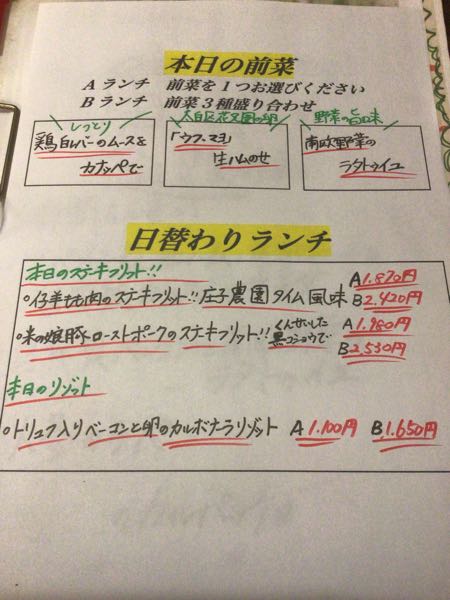 本日の前菜
Aランチ 前菜を1つお選びください
Bランチ 前菜3種盛り合わせ
しっとり
鶏白レバーのムースを
カナッペで
太白区花兄園の卵
「ウフ・マヨ」
生ハムのせ
野菜の旨味
南欧野菜の
ラタトゥイユ
日替わりランチ
本日のステキフリット!!
A 1.870円
○仔羊もも肉のステキフリット!! 庄子農園タイム風味 B 2.420円
○米の娘豚ローストポークのステキフリット!! くんせいした黒コショウで A 1.980円
B 2.530円
本日のリゾット
○トリュフ入りベーコンと卵のカルボナーラリゾット A 1.100円 B 1.650円